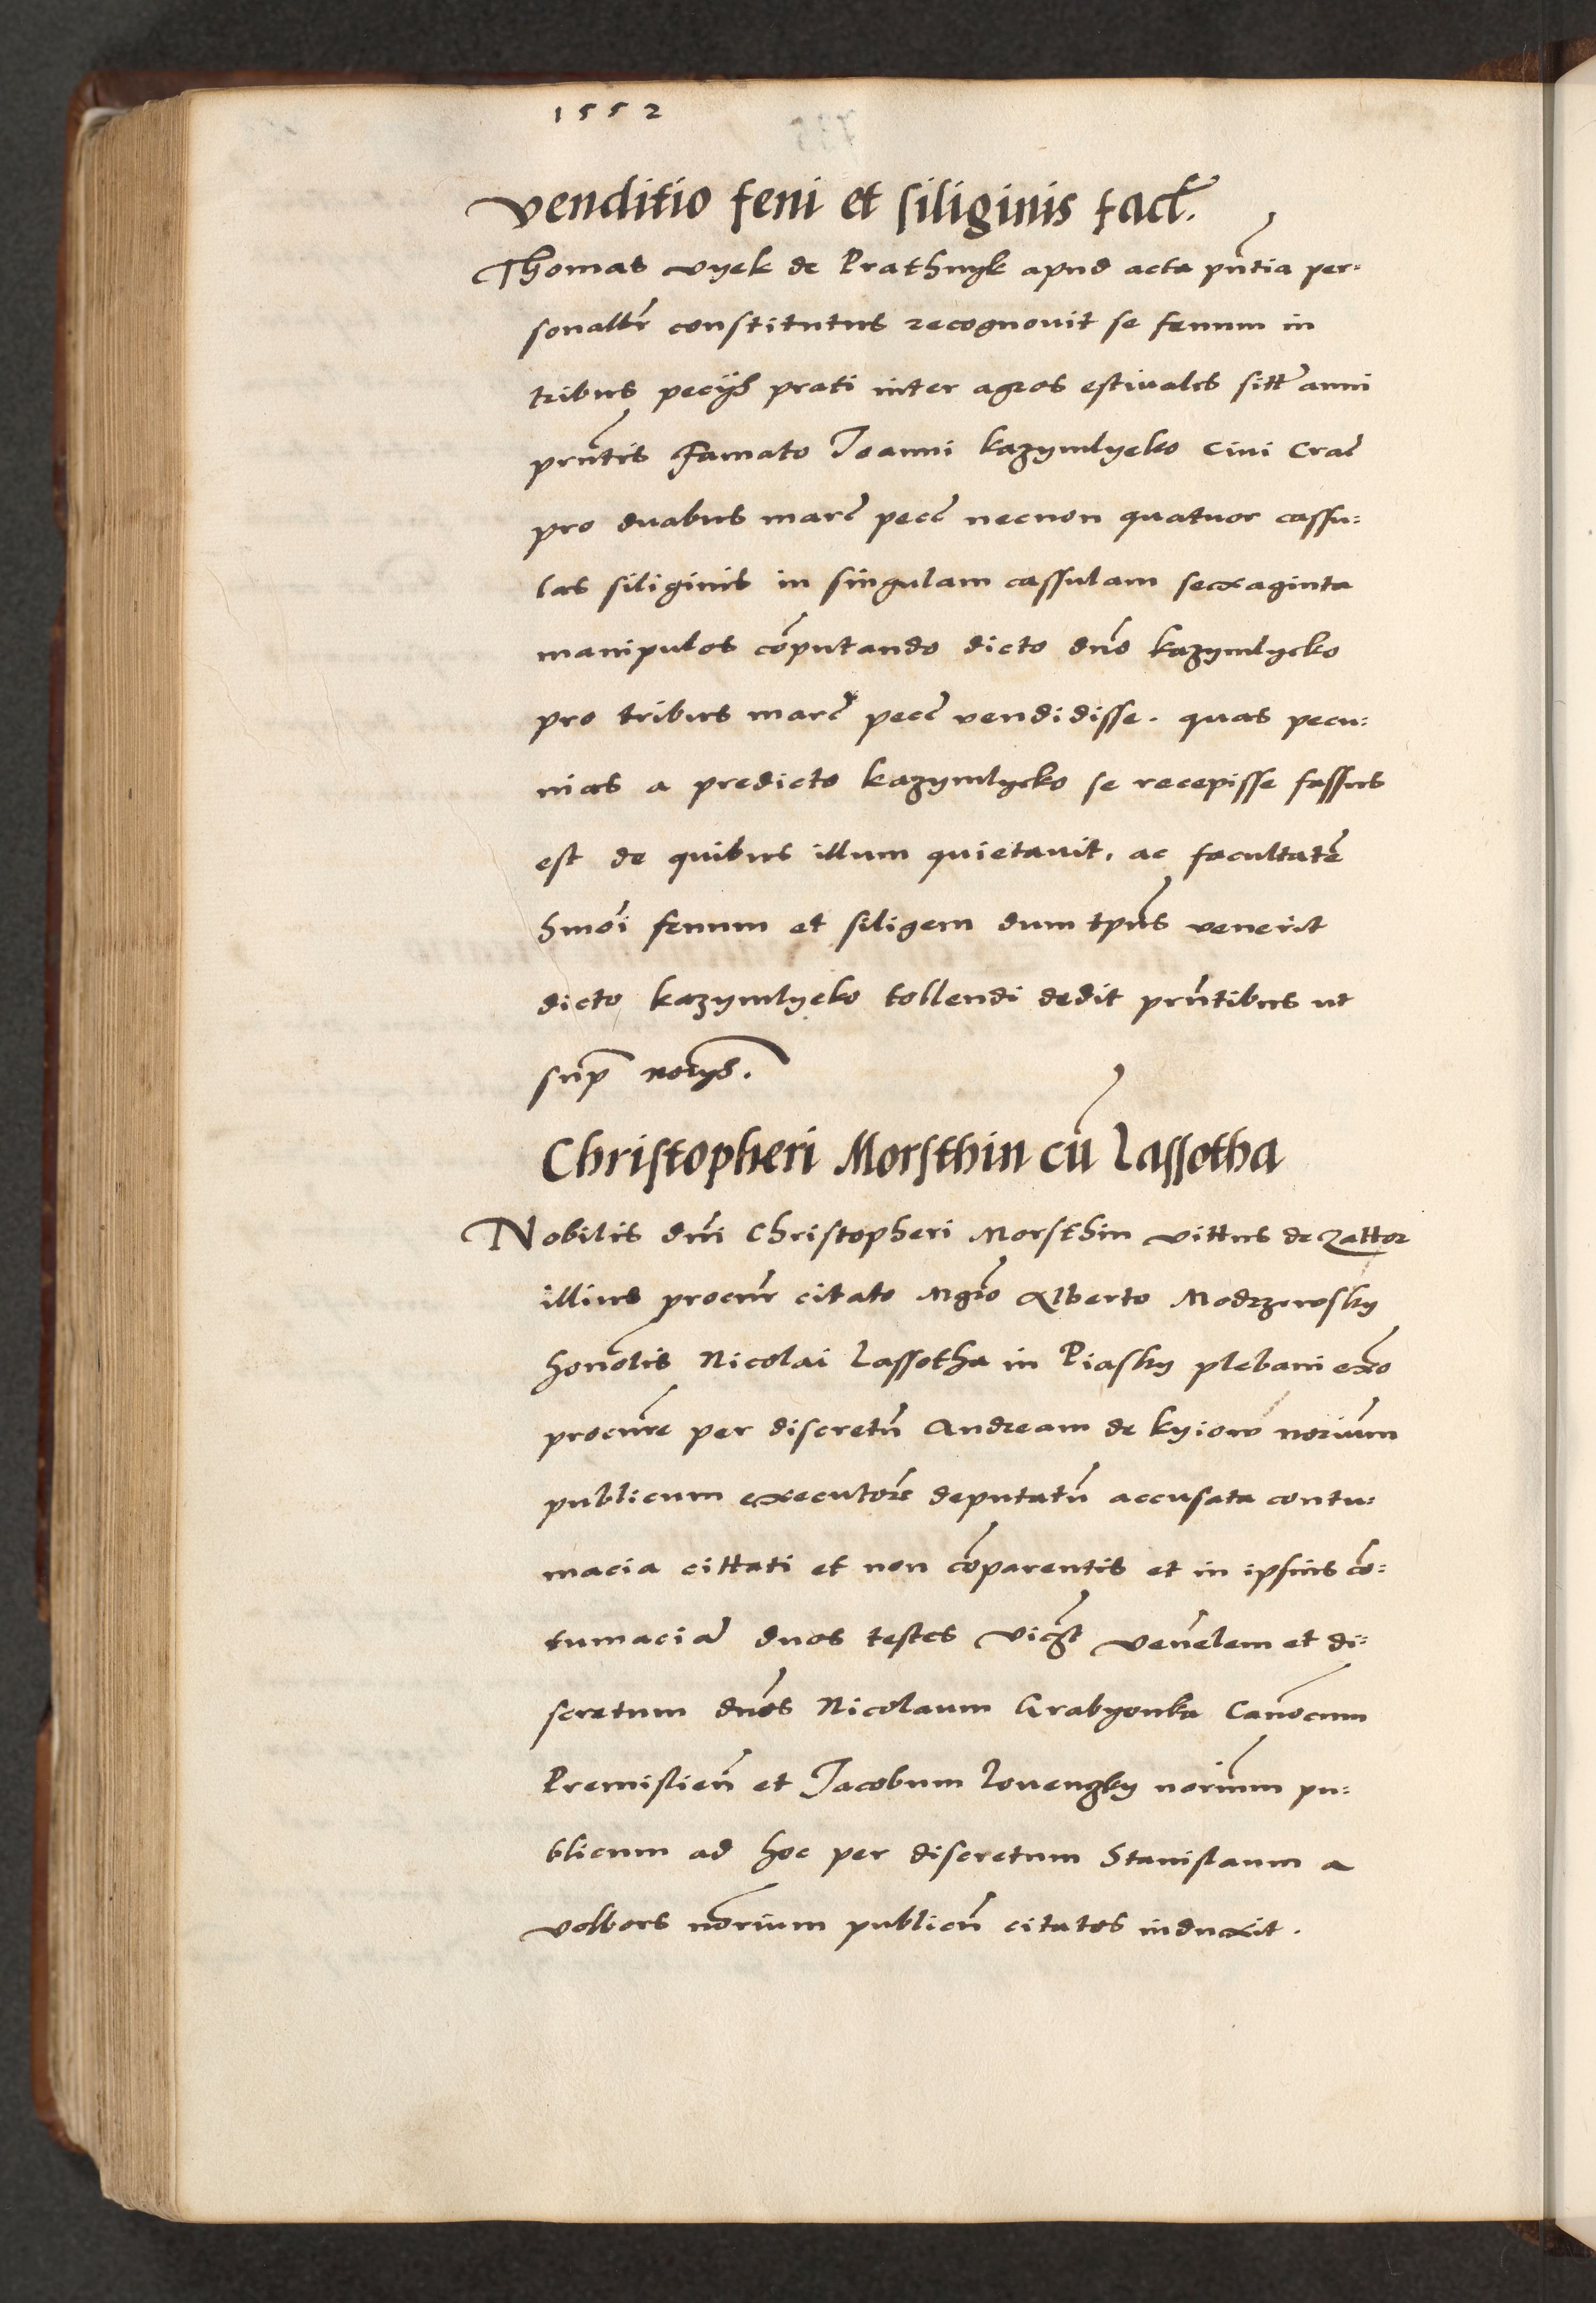 1552
Venditio feni et siliginis fact.
Thomas Vyek de Prathnyk apud acta pñtia per:
sonaltr̃ constitutus recognovit se fenum in
tribus pecijs prati inter agros estivales sitt̃ anni
prñtis Famato Joanni kazymlyeko Civi Crac̃
pro duabus marc̃ pecc̃ necnon quatuor cassu:
las siliginis in singulam cassulam sexaginta
manipulos cõputando dicto dño kazymlycko
pro tribus marc̃ pecc̃ vendidisse. quas pecu:
nias a predicto kazymlycko se recepisse fassus
est de quibus illum quietavit, ac facultatẽ
hmõi fenum et siligem dum tpus̃ venerit
dicto kazymlyeko tollendi dedit prñtibus ut
sup̃ norijs.
Christopheri Morsthin cũ Lassotha
Nobilis dñi Christopheri Morsthin Vittus de Zattor
illius procur̃ citato Mgrõ Alberto Modrzewsky
honolis̃ Nicolai Lassotha in Piasky plebani exo
procure̅ per discretũ Andream de kyiow noriũm
publicum executorẽ deputatũ accusata contu:
macia cittati et non cõparentis et in ipsius cõ:
tumaciã duos testes vicz̃t Veñelem et di:
scretum dños Nicolaum Grabyonka Canocum
Premislieñ et Jacobum Lovenczky noriũm pu:
blicum ad hoc per discretum Stanislaum a
Volbors norium publicũ citatos induxit.